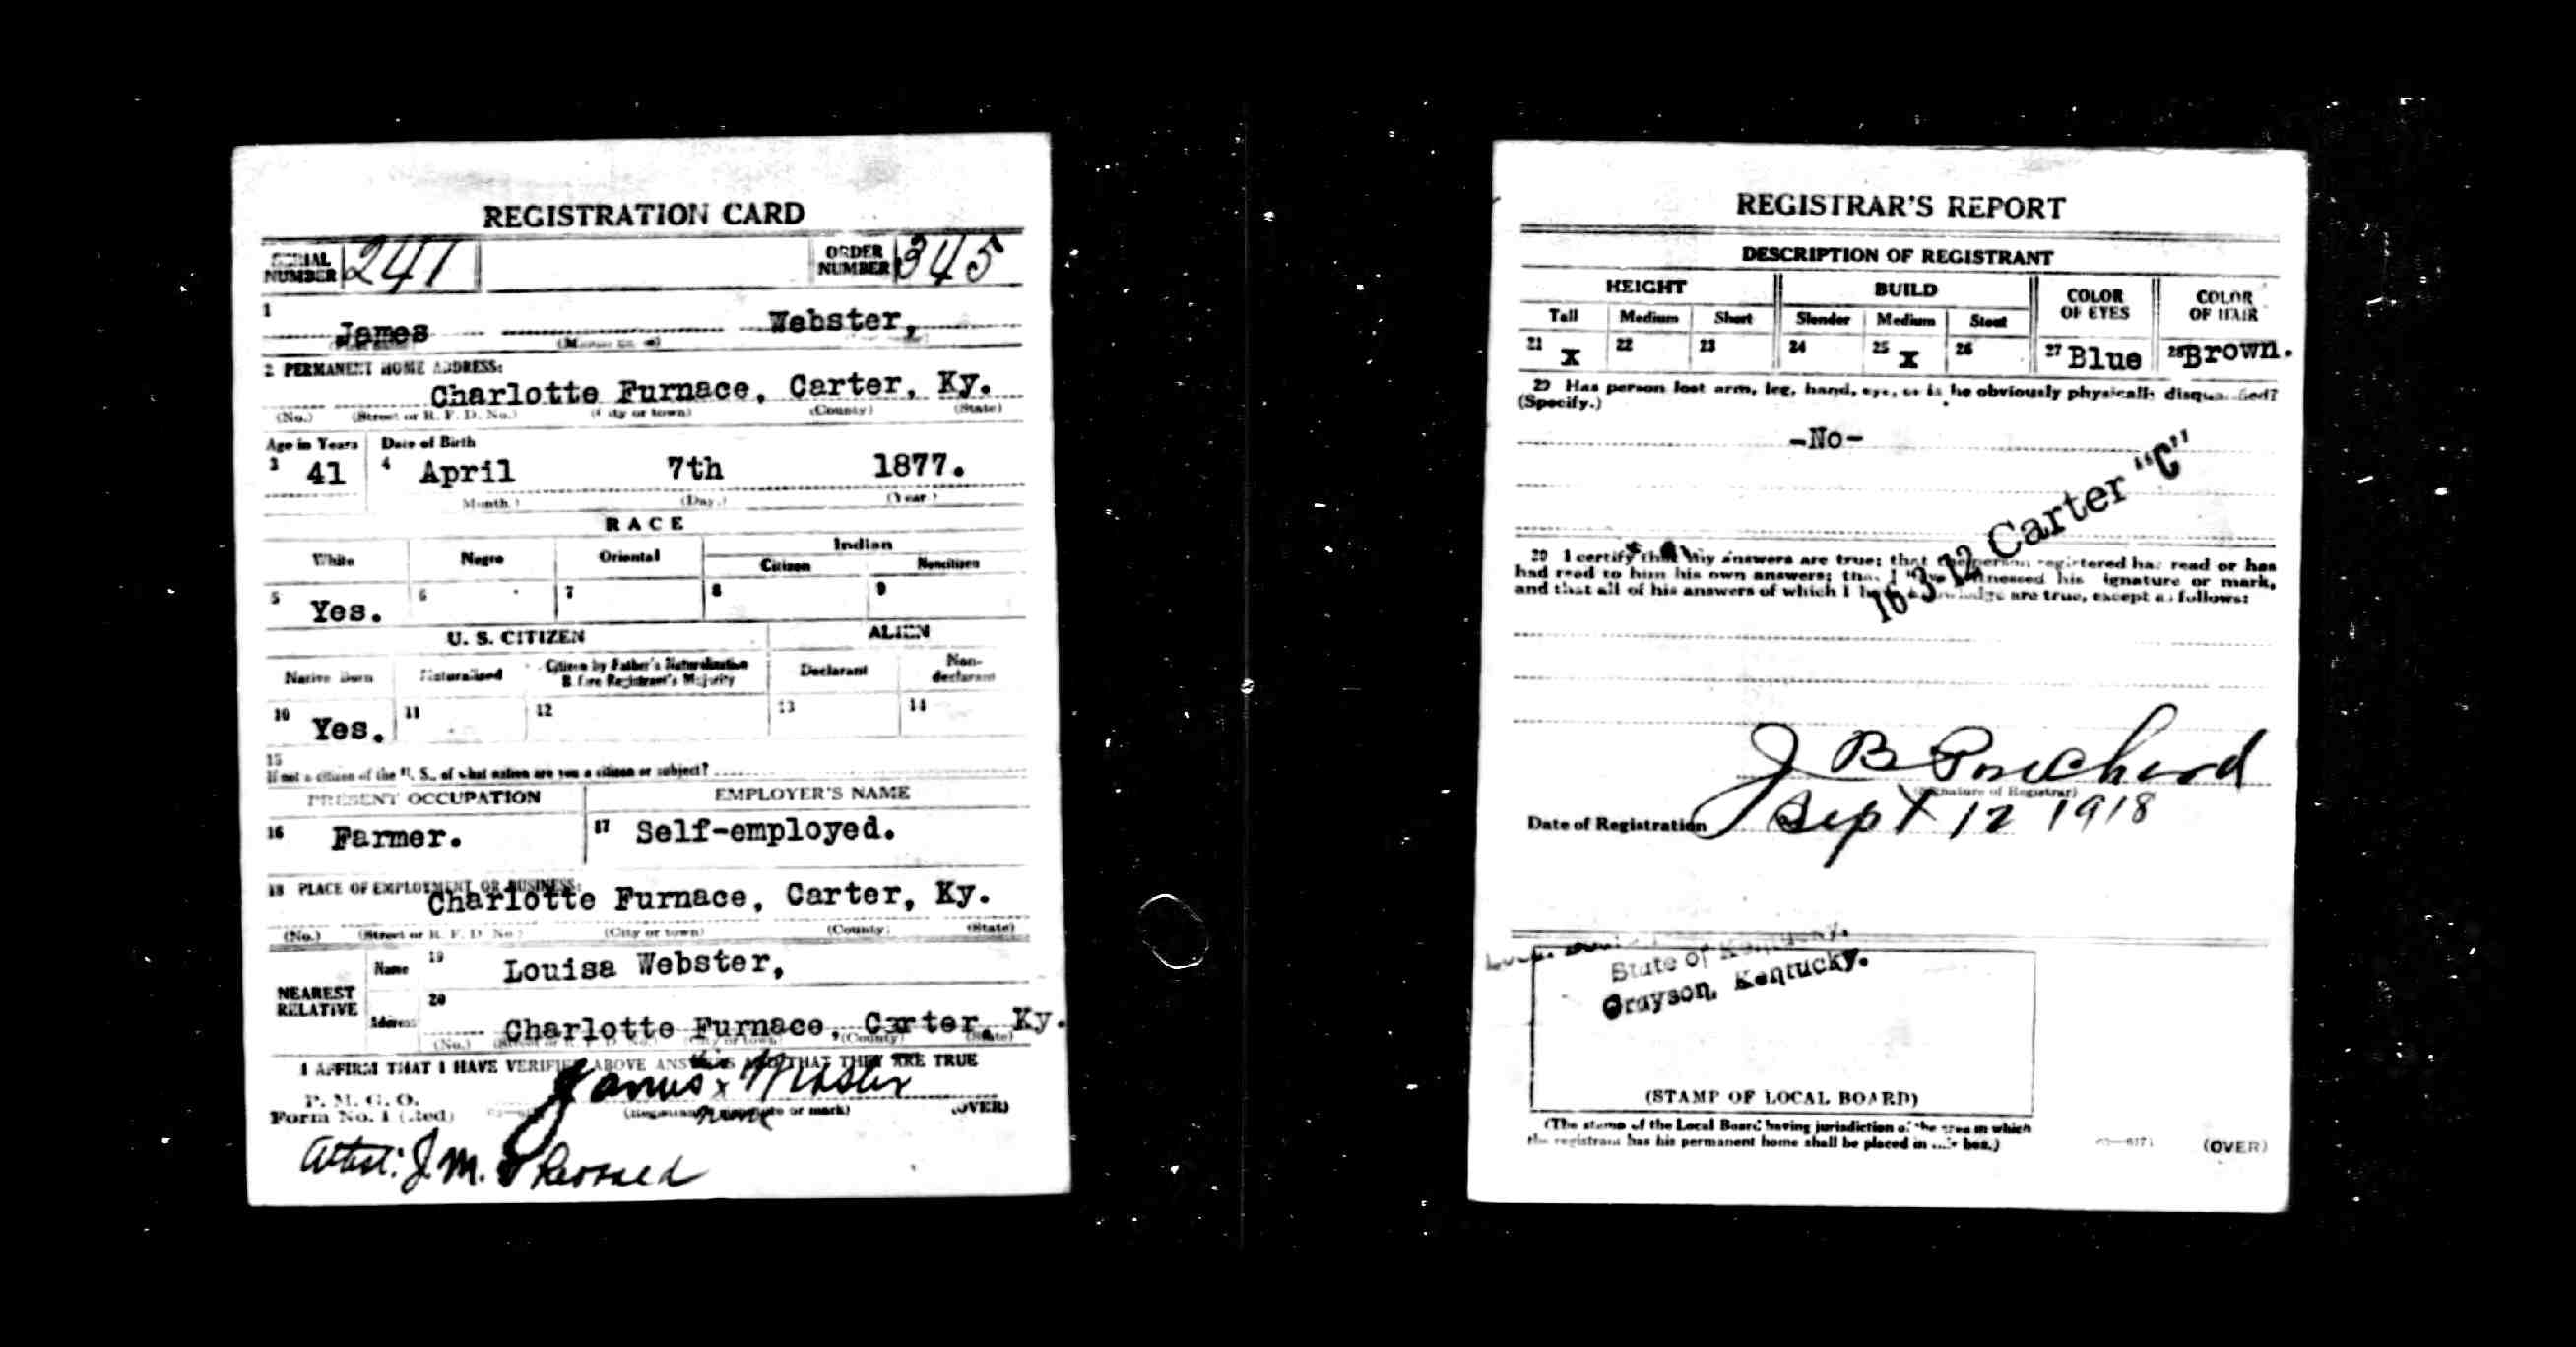 REGISTRATION CARD
SERIAL NUMBER 241 ORDER NUMBER 345
1 James Webster,
2 PERMANENT HOME ADDRESS:
Charlotte Furnace, Carter, Ky.
(No.) (Street or R. F. D. No.) (City or town) (County) (State)
Age in Years Date of Birth
3 41 4 April 7th 1877.
(Month.) (Day.) (Year.)
RACE
White Negro Oriental Indian
Citizen Noncitizen
5 Yes. 6 7 8 9
U. S. CITIZEN ALIEN
Native Born Naturalized Citizen by Father's Naturalization Before Registrant's Majority Declarant Non-declarant
10 Yes. 11 12 13 14
15
If not a citizen of the U. S., of what nation are you a citizen or subject?
PRESENT OCCUPATION EMPLOYER'S NAME
16 Farmer. 17 Self-employed.
18 PLACE OF EMPLOYMENT OR BUSINESS:
Charlotte Furnace, Carter, Ky.
(No.) (Street or R. F. D. No.) (City or town) (County) (State)
NEAREST RELATIVE
Name 19 Louisa Webster,
Address 20 Charlotte Furnace, Carter, Ky.
(No.) (Street or R. F. D. No.) (City or town) (County) (State)
I AFFIRM THAT I HAVE VERIFIED ABOVE ANSWERS AND THAT THEY ARE TRUE
P. M. G. O.
Form No. 1 (Red)
his
James x Webster
mark
(Registrant's signature or mark) (OVER)
Attest: J. M.
REGISTRAR'S REPORT
DESCRIPTION OF REGISTRANT
HEIGHT BUILD COLOR OF EYES COLOR OF HAIR
Tall Medium Short Slender Medium Stout
21 X 22 23 24 25 X 26 27 Blue 28 Brown.
29 Has person lost arm, leg, hand, eye, or is he obviously physically disqualified?
(Specify.)
-No-
16-3-12 Carter "C"
30 I certify that my answers are true; that the person registered has read or has
had read to him his own answers; that I have witnessed his signature or mark,
and that all of his answers of which I have knowledge are true, except as follows:
J B Prichard
(Signature of Registrar)
Date of Registration Sept 12 1918
State of Kentucky.
Grayson, Kentucky.
(STAMP OF LOCAL BOARD)
(The stamp of the Local Board having jurisdiction of the area in which
the registrant has his permanent home shall be placed in this box.)
(OVER)